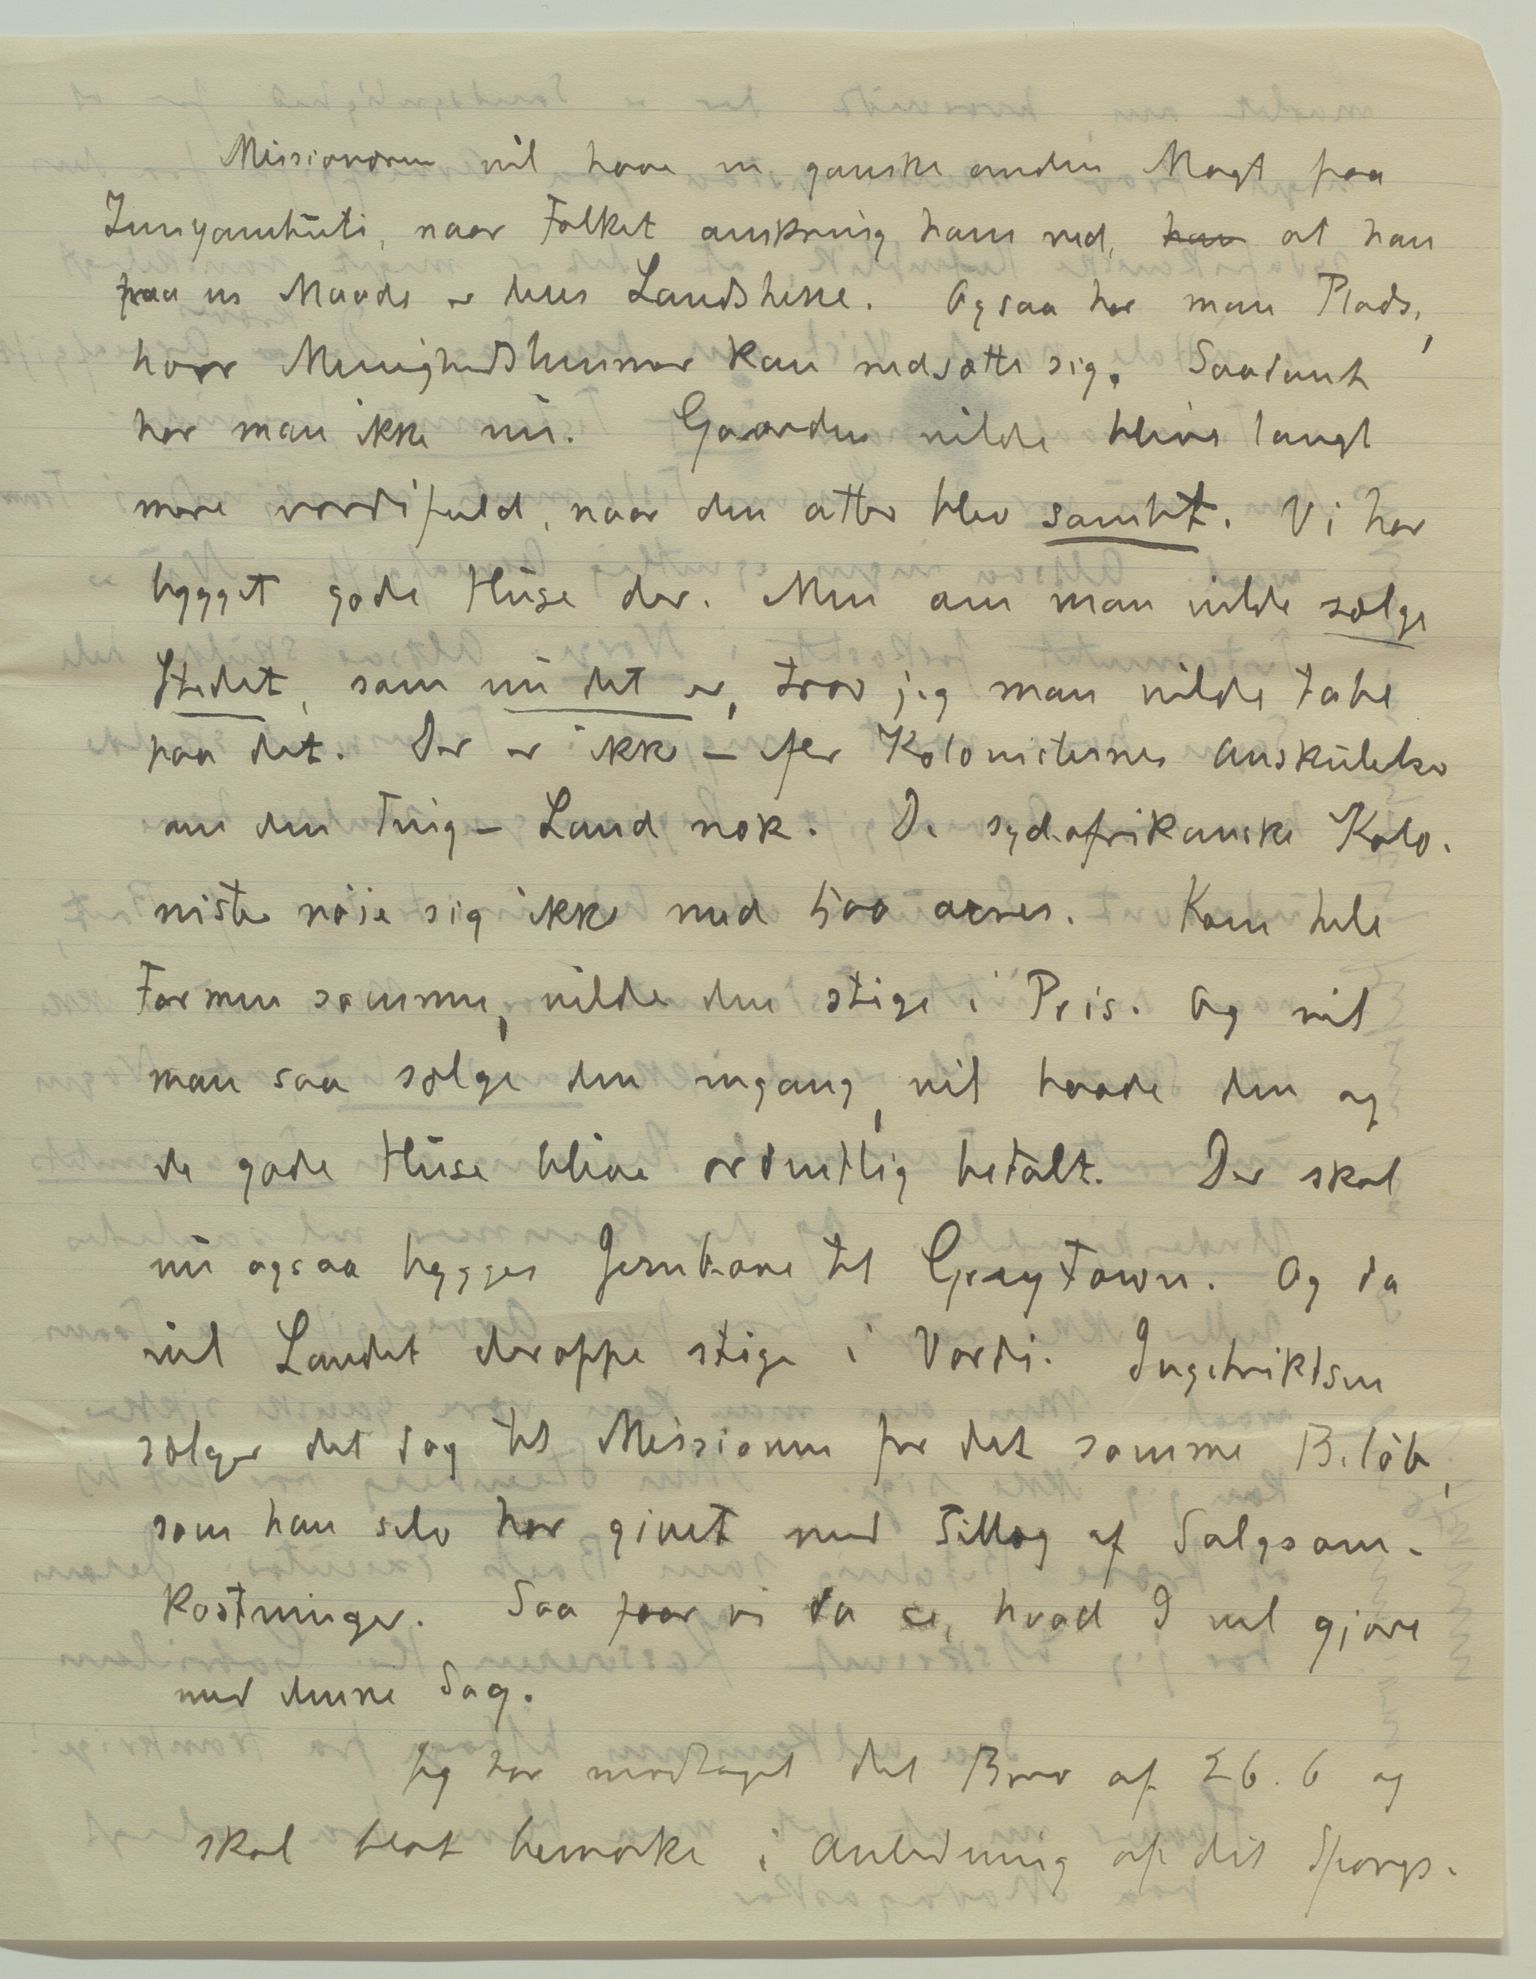 Missionæren vil have en ganske anden Magt paa
naar Folket omkring ham ved, ~~han~~ at han
paa en Maade er deres Landsherre. Ogsaa har man Plads,
hvor Menighedslemmer kan nedsætte sig. Saadant
har man ikke nu. Gaarden vilde blive langt
mere værdifuld, naar den atter blev samlet. Vi har
bygget gode Huse der. Men om man vilde sælge
Stedet, som nu det er, tror jeg man vilde tabe
paa det. Der er ikke – efter Kolonisternes Anskuelse
om den Ting – Land nok. De sydafrikanske Kolo-
nister nøie sig ikke med 500 acres. Kom hele
Farmen sammen, vilde den stige i Pris. Og vil
man saa sælge den engang, vil baade den og
de gode Huse blive ordentlig betalt. Der skal
nu ogsaa bygges Jernbane til Greytown. Og da
vil Landet deroppe stige i Værdi. Ingebriktsen
sælger det dog til Missionen for det samme Beløb,
som han selv har givet med Tillæg af Salgsom-
kostninger. Saa faar vi da se, hvad I vil gjøre
med denne Sag.
Jeg har modtaget dit Brev af 26.6 og
skal blot bemærke i Anledning af dit Spørgs-